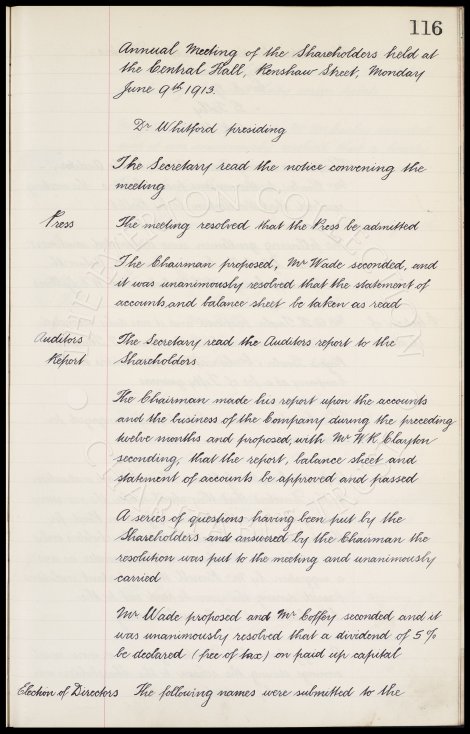 116
Annual Meeting of the Shareholders held at
the Central Hall, Renshaw Street, Monday
June 9th 1913.
Dr Whitford presiding
The Secretary read the notice convening the
meeting
Press The meeting resolved that the Press be admitted
The Chairman proposed, Mr Wade seconded, and
it was unanimously resolved that the statement of
accounts and balance sheet be taken as read
Auditors The Secretary read the Auditors report to the
Report Shareholders
The Chairman made his report upon the accounts
and the business of the Company during the preceding
twelve months and proposed, with Mr W. R. Clayton
seconding, that the report, balance sheet and
statement of accounts be approved and passed
A series of questions having been put by the
Shareholders and answered by the Chairman the
resolution was put to the meeting and unanimously
carried
Mr Wade proposed and Mr Coffey seconded and it
was unanimously resolved that a dividend of 5%
be declared (free of tax) on paid up capital
Election of Directors The following names were submitted to the